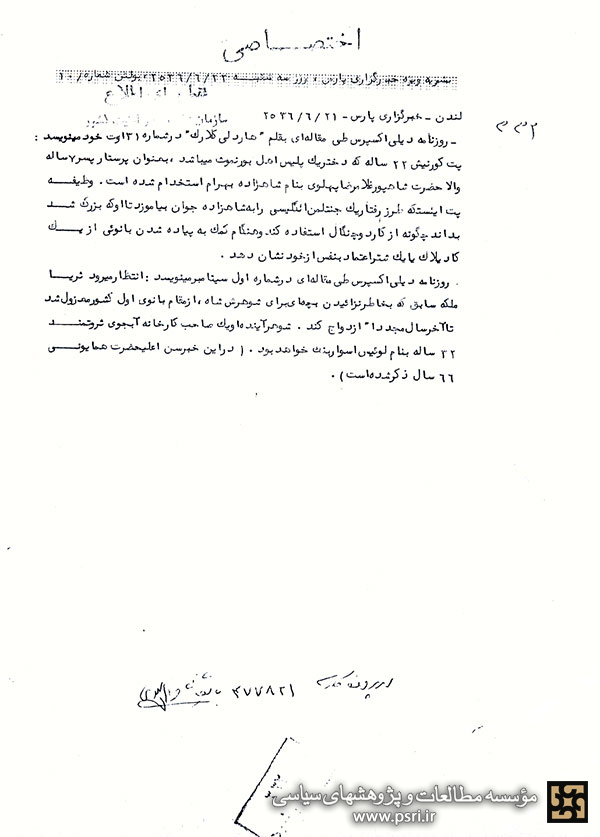 اختصاصی
نشریه ویژه خبرگزاری پارس ، روز سه شنبه ۲۵۳۶/۶/۲۲
فقط برای اطلاع
لندن - خبرگزاری پارس - ۲۵۳۶/۶/۲۱
سازمان
- روزنامه دیلی اکسپرس طی مقاله‌ای بقلم " هاردلی کلارک" در شماره ۳۱ اوت خود مینویسد :
پت کورنیش ۲۲ ساله که دختریک پلیس اهل بورنموث میباشد ، بعنوان پرستار پسر ۷ ساله
والا حضرت شاهپور غلامرضا پهلوی بنام شاهزاده بهرام استخدام شده است . وظیفه
پت اینستکه طرز رفتاریک جنتلمن انگلیسی را به شاهزاده جوان بیاموزد تا او که بزرگ شد
بداند چگونه از کارد و چنگال استفاده کند و هنگام کمک به پیاده شدن بانوئی از یک
کادیلاک یا یک شتر اعتماد بنفس از خود نشان دهد .
روزنامه دیلی اکسپرس طی مقاله‌ای در شماره اول سپتامبر مینویسد : انتظار میرود ثریا
ملکه سابق که بخاطر نزائیدن بچه‌ای برای شوهرش شاه ، از مقام بانوی اول کشور معزول شد
تا آخر سال مجددا" ازدواج کند . شوهر آینده او یک صاحب کارخانه آبجوی ثروتمند
۳۲ ساله بنام لوئیس اسواربنک خواهد بود . ( در این خبر سن اعلیحضرت همایونی
۶۶ سال ذکر شده است ) .
۴۷۷۸۲۱
مؤسسه مطالعات و پژوهشهای سیاسی
www.psri.ir